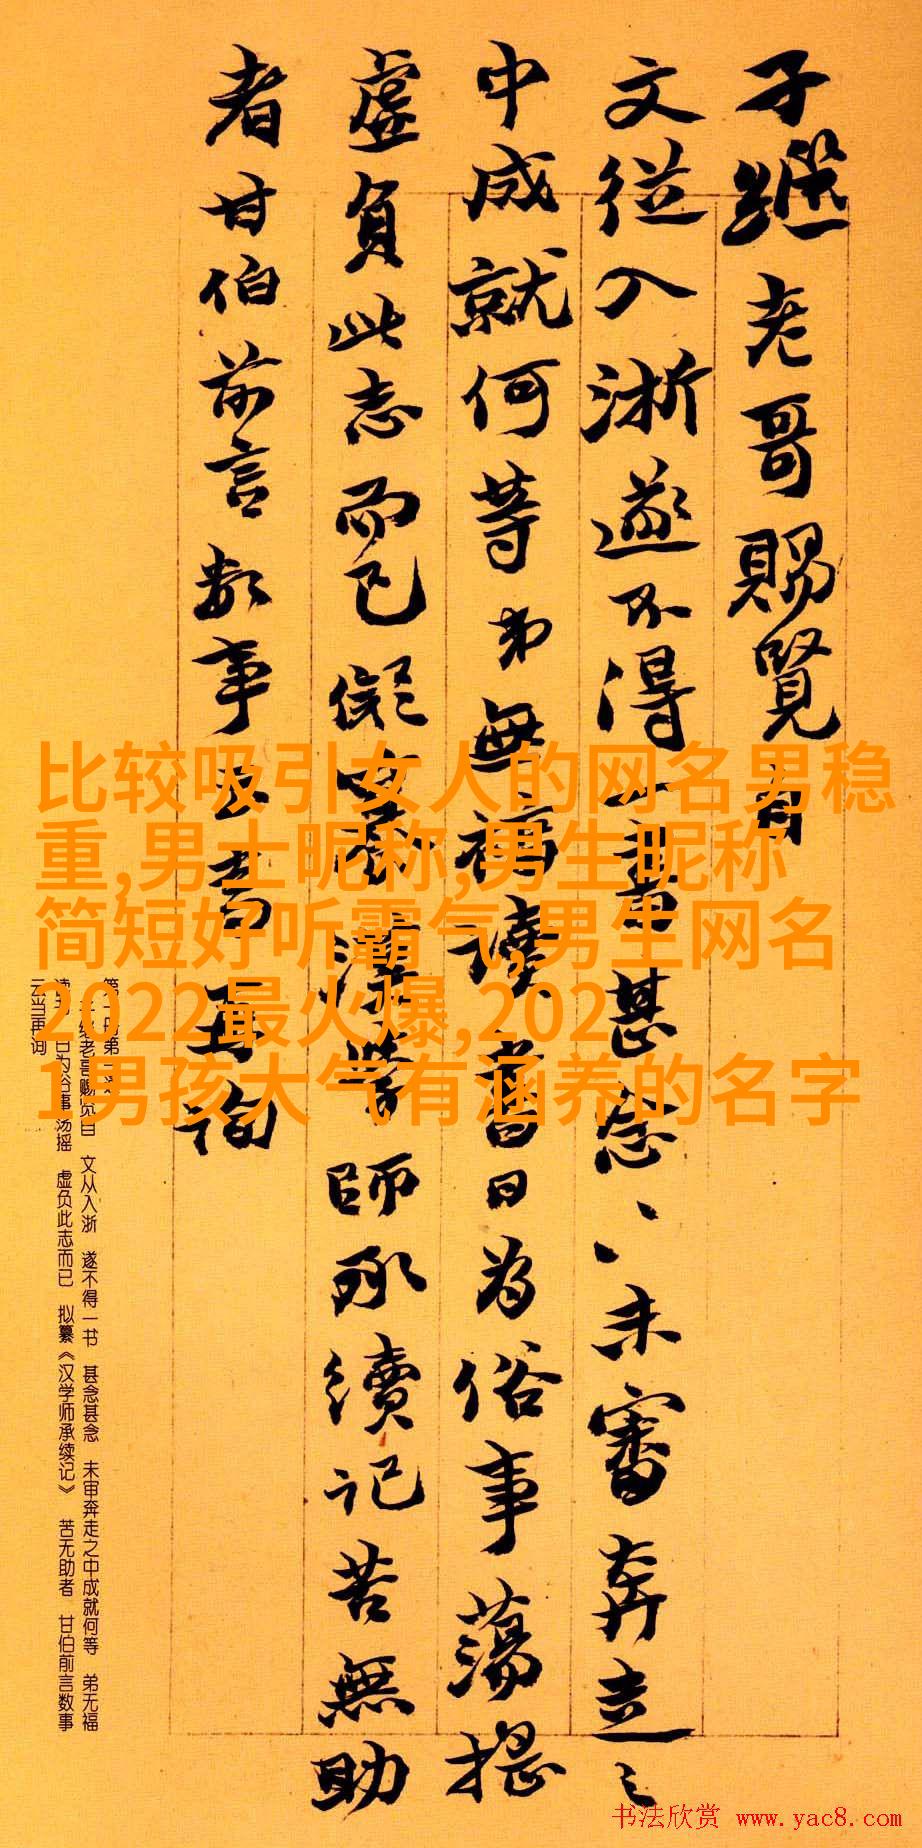 子繼老哥賜覽自
文從入浙遂不得一書甚念〻未審奔走之
中成就何等弟無福讀書日為俗事蕩搖
虛負此志而已擬纂漢學師承續記苦無助
者甘伯前言數事云當再詢
比较吸引女人的网名男稳
重,男士昵称,男生昵称
简短好听霸气,男生网名
2022最火爆,202
1男孩大气有涵养的名字
老哥赐览自 文从入浙 遂不得一书 甚念甚念 未审奔走之中成就何等 弟无福
读书 日为俗事荡摇 虚负此志而已 拟纂《汉学师承续记》 苦无助者 甘伯前言数事
云当再询
书法欣赏 www.yac8.com